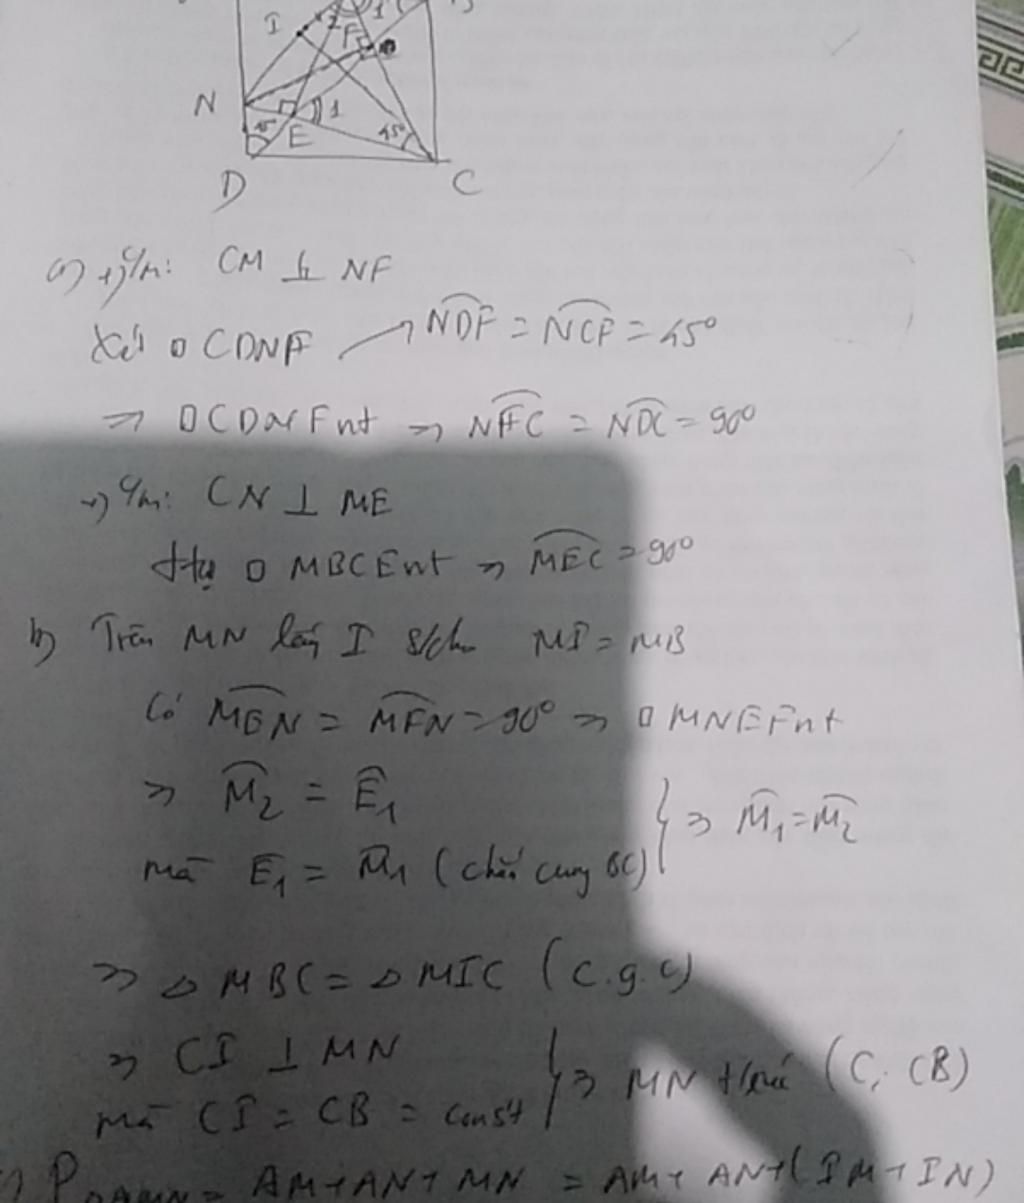 I 2 1
F
N 1
45° E 45°
D C
a) +) C/m: CM ⊥ NF
Xét □ CDNF ↗ \widehat{NDF} = \widehat{NCF} = 45°
⇒ □CDNF nt ⇒ \widehat{NFC} = \widehat{NDC} = 90°
+) C/m: CN ⊥ ME
□ MBCE nt ⇒ \widehat{MEC} = 90°
b) Trên MN lấy I s/cho MI = MB
Có \widehat{MEN} = \widehat{MFN} = 90° ⇒ □ MNEF nt
⇒ \widehat{M}_2 = \widehat{E}_1
⇒ \widehat{M}_1 = \widehat{M}_2
mà E_1 = \widehat{M}_1 (chắn cung BC)
⇒ △ MBC = △ MIC (c.g.c)
⇒ CI ⊥ MN
⇒ MN (C, CB)
mà CI = CB = const
= AM + AN + MN = AM + AN + (IM + IN)